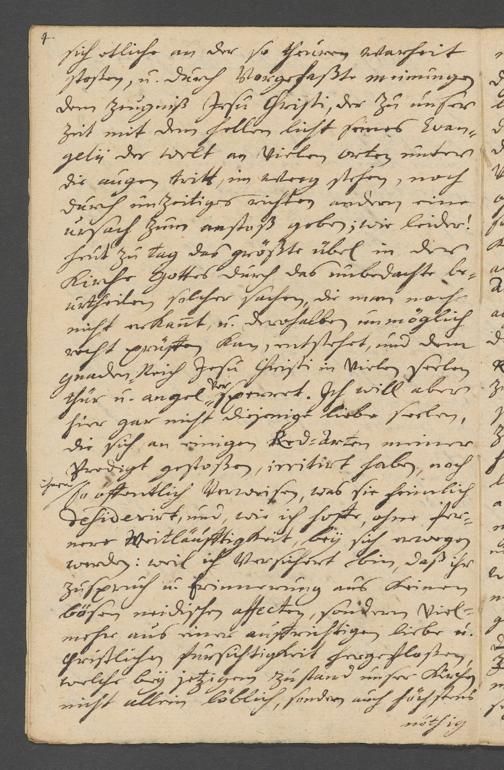 4.
sich etliche an der so theuren warheit
stoßen, u. durch Vorgefaßte meinungen
dem Zeugniß Jesu Christi, der zu unser
Zeit mit dem hellen licht seines Evan-
gelij der welt an Vielen orten unter
die augen tritt, im weeg stehen, noch
durch unzeitiges richten andern eine
ursach zum anstoß geben; wie leider!
heut zu tag das größte übel in der
Kirche Gottes durch das unbedachte be-
urtheilen solcher sachen, die man noch
nicht erkant, u. derohalben unmöglich
recht prüffen kan, entstehet, und dem
gnaden-Reich Jesu Christi in Vielen seelen
thür u. angel Versperret. Ich will aber
hier gar nicht diejenige liebe seelen,
die sich an einigen Red-arten meiner
Predigt gestoßen, irritirt haben, noch
ihnen
so offentlich Verweisen, was sie heimlich
desiderirt, und, wie ich hoffe, ohne fer-
nere Weitläufftigkeit, bey sich erwogen
werden: weil ich Versichert bin, daß ihr
Zuspruch u. Erinnerung aus keinen
bösen neidischen affecten, sondern Viel-
mehr aus einer auffrichtigen liebe u.
christlichen fürsichtigkeit hergefloßen,
welche bey jetzigem Zustand unser Kirchen
nicht allein löblich, sondern auch höchstens
nöthig